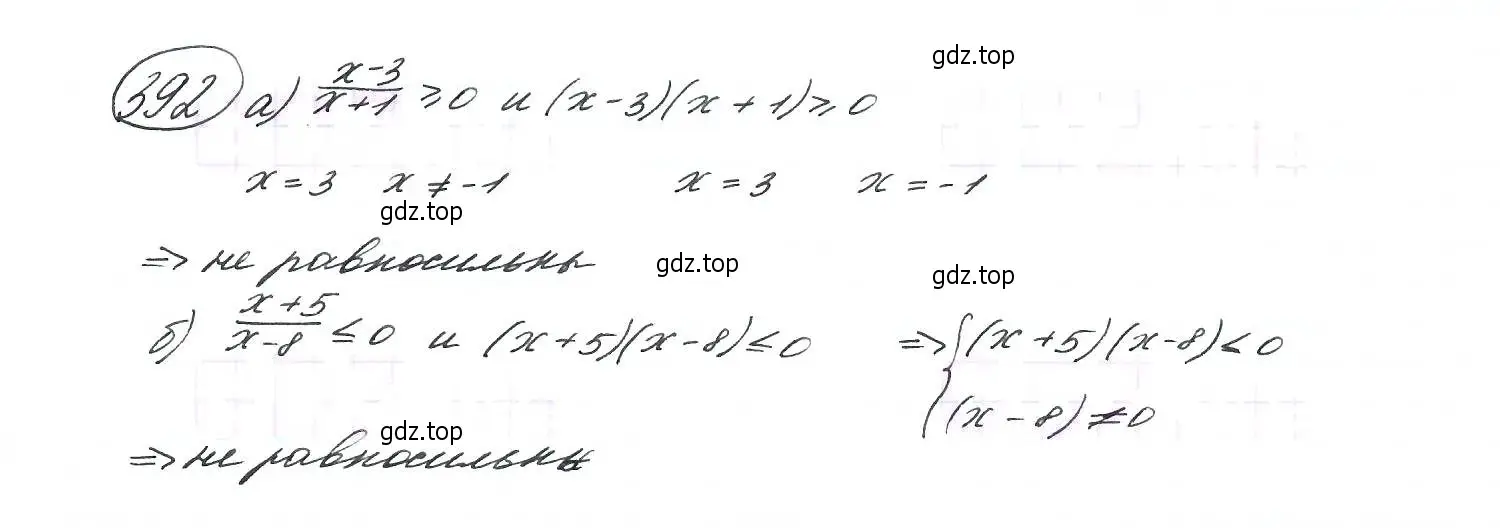 gdz.top
392 а) (x-3)/(x+1) ≥ 0 и (x-3)(x+1) ≥ 0
x = 3 x ≠ -1 x = 3 x = -1
gdz.top
⇒ не равносильны gdz.top gdz.top
б) (x+5)/(x-8) ≤ 0 и (x+5)(x-8) ≤ 0 ⇒ { (x+5)(x-8) < 0
(x-8) ≠ 0
gdz.top
⇒ не равносильны